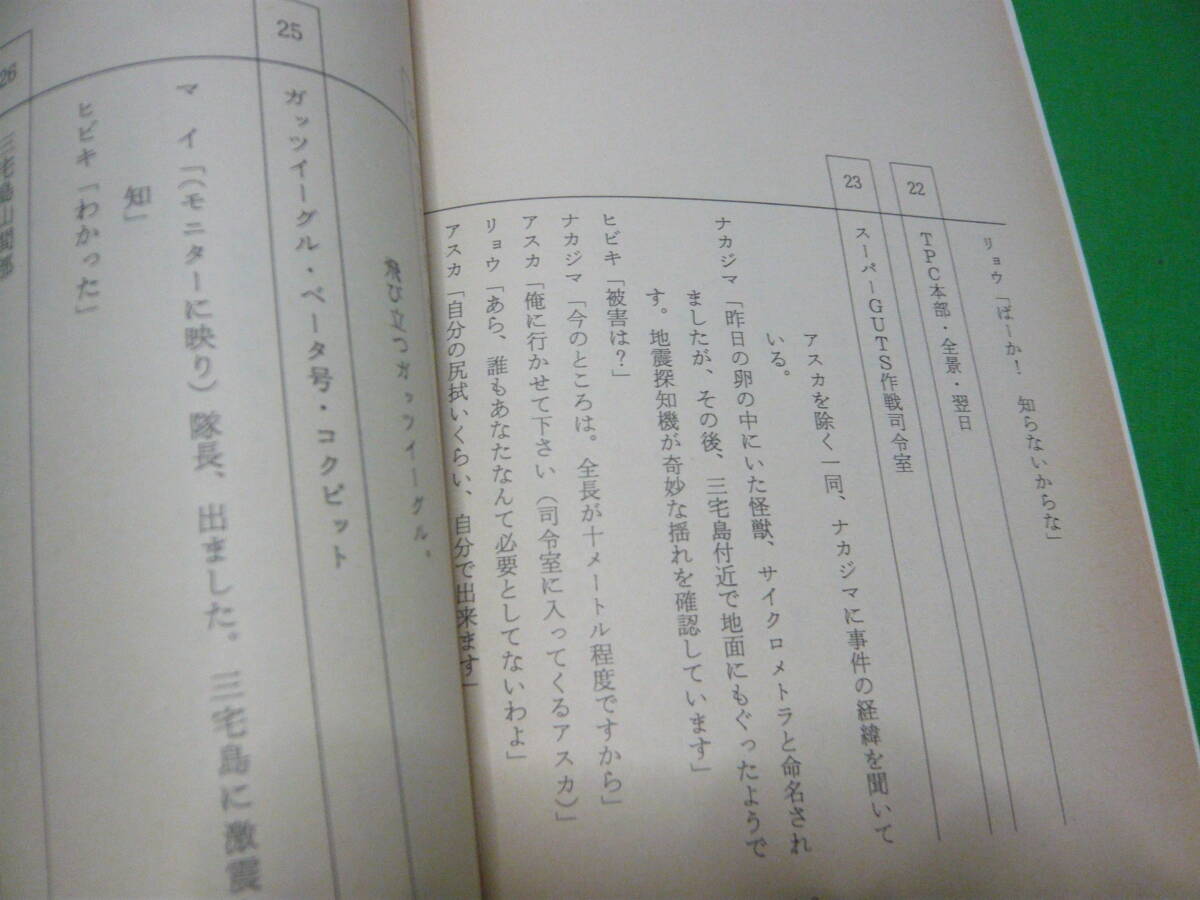 リョウ「ばーか! 知らないからな」
22
TPC本部・全景・翌日
23
スーパーGUTS作戦司令室
アスカを除く一同、ナカジマに事件の経緯を聞いて
いる。
ナカジマ「昨日の卵の中にいた怪獣、サイクロメトラと命名され
ましたが、その後、三宅島付近で地面にもぐったようで
す。地震探知機が奇妙な揺れを確認しています」
ヒビキ「被害は?」
ナカジマ「今のところは。全長が十メートル程度ですから」
アスカ「俺に行かせて下さい(司令室に入ってくるアスカ)」
リョウ「あら、誰もあなたなんて必要としてないわよ」
アスカ「自分の尻拭いくらい、自分で出来ます」
飛び立つガッツイーグル。
25
ガッツイーグル・ベータ号・コクピット
マイ「(モニターに映り)隊長、出ました。三宅島に激震
知」
ヒビキ「わかった」
26
三宅島山間部